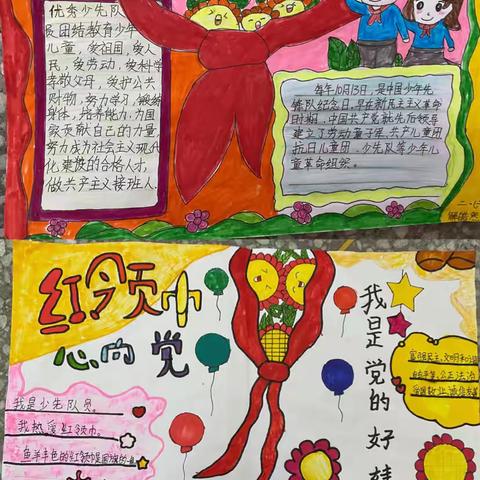 优秀少先队
员团结教育少年
儿童,爱祖国,爱人
民,爱劳动,爱科学
孝敬父母,爱护公共
财物,努力学习,锻练
身体,培养能力,为国
家贡献自己的力量,
努力成为社会主义现代
化建设的合格人才,
做共产主义接班人.
每年10月13日,是中国少年先
锋队纪念日,早在新民主主义革命
时期,中国共产党就先后领导
建立了劳动童子团,共产儿童团
抗日儿童团、少先队等少年儿
童革命组织。
红领巾
心向党
我是少先队员。
我热爱红领巾。
我是党的好娃
富强民主,文明和谐
自由平等,公正法治
爱国敬业,诚信友善